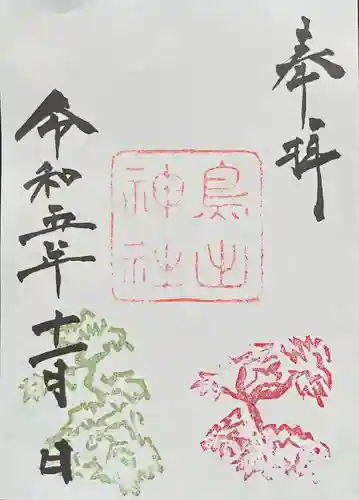 奉拝
鳥出
神社
令和五年
十一月 日